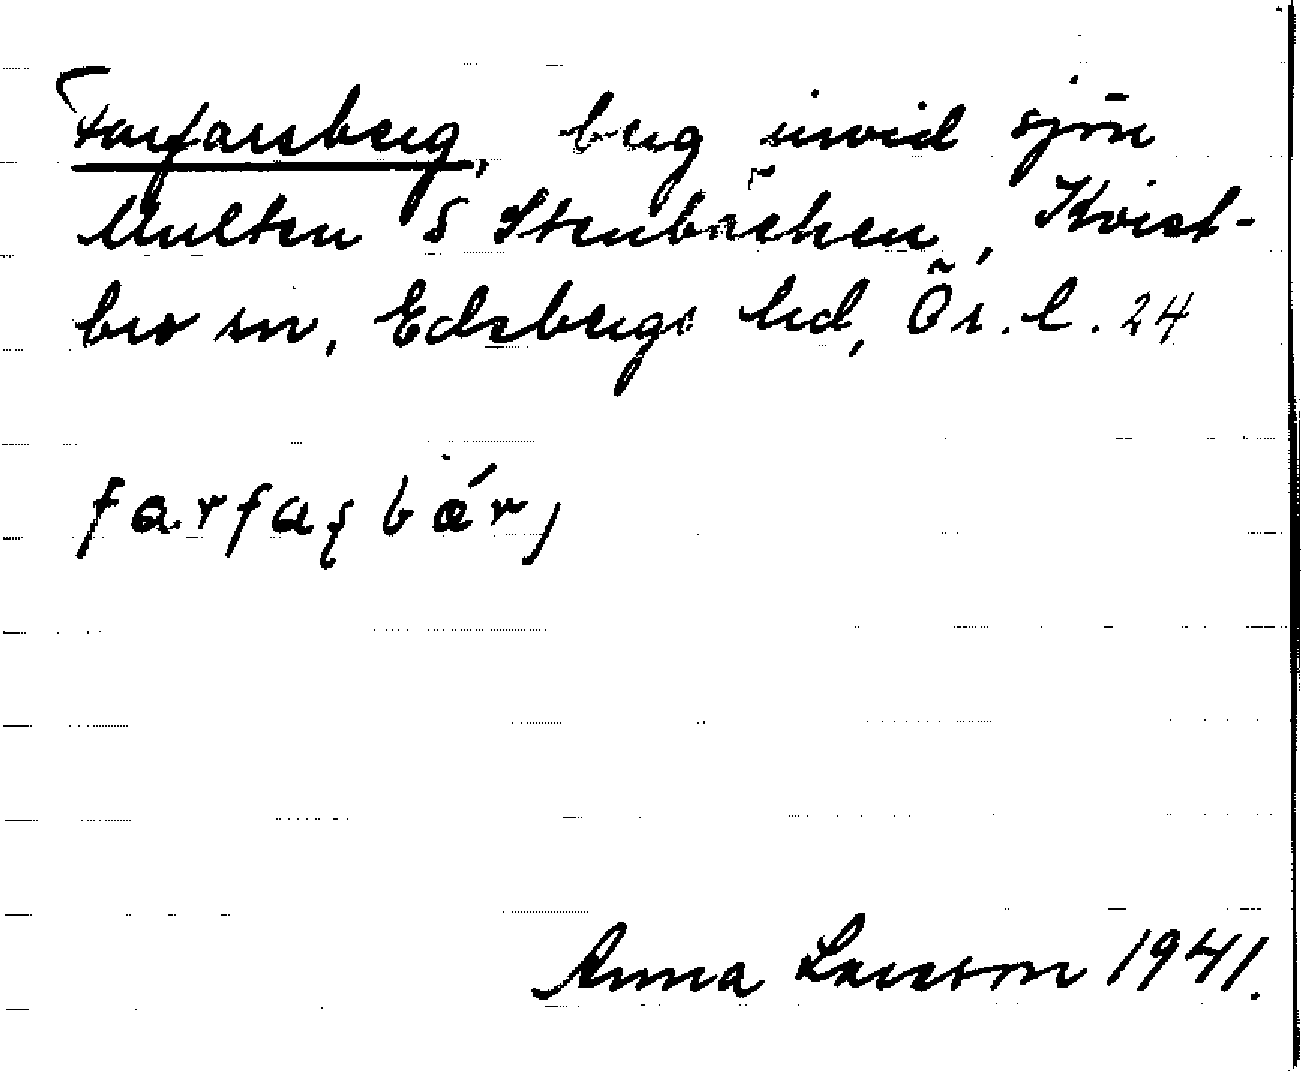 Farfarsberg, berg invid sjön
Multen S Stenbäcken, Kvist-
bro sn, Edsbergs hd, Ör. l. 24
farfaʂbárj
Anna Larsson 1941.